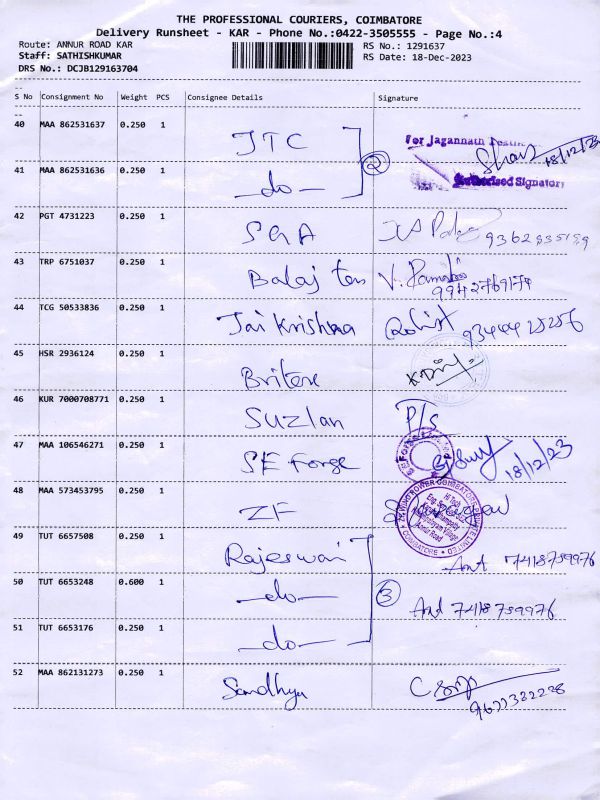 THE PROFESSIONAL COURIERS, COIMBATORE
Delivery Runsheet - KAR - Phone No.:0422-3505555 - Page No.:4
Route: ANNUR ROAD KAR
RS No.: 1291637
Staff: SATHISHKUMAR
RS Date: 18-Dec-2023
DRS No.: DCJB129163704
S No Consignment No Weight PCS Consignee Details Signature
40 MAA 862531637 0.250 1 JTC For Jagannath 18/12/23
41 MAA 862531636 0.250 1 -do- 2 Authorised Signatory
42 PGT 4731223 0.250 1 SGA
43 TRP 6751037 0.250 1 Balaj tex V.
44 TCG 50533836 0.250 1 Jai Krishna Rohit
45 HSR 2936124 0.250 1
46 KUR 7000708771 0.250 1 Suzlan P/s
47 MAA 106546271 0.250 1 SE Forge 18/12/23
48 MAA 573453795 0.250 1 ZF
49 TUT 6657508 0.250 1 Rajeswari
50 TUT 6653248 0.600 1 -do- 3
51 TUT 6653176 0.250 1 -do-
52 MAA 862131273 0.250 1 Sandhya